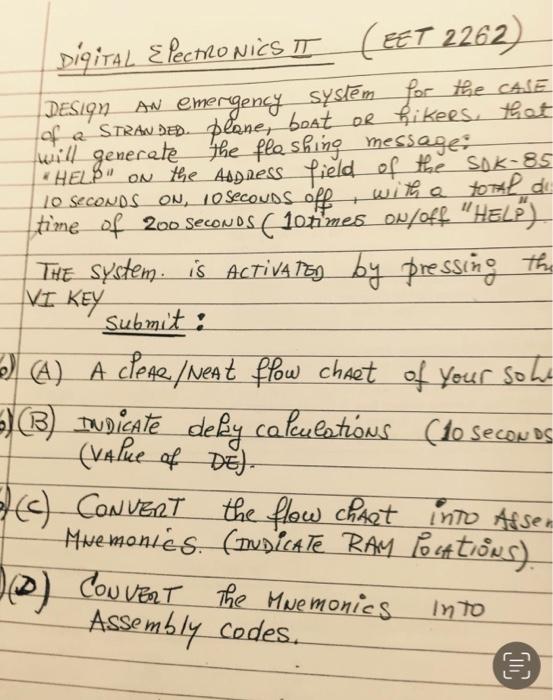 DIGITAL ELECTRONICS II (EET 2262)
DESIGN AN emergency system for the CASE
of a STRANDED plane, boat or hikers, that
will generate the flashing message:
"HELP" ON the ADDRESS field of the SDK-85
10 SECONDS ON, 10 SECONDS off, with a total
time of 200 seconds (10 times ON/off "HELP")
THE system. is ACTIVATED by pressing
VI KEY
Submit:
(A) A clear/NEAT flow chart of your
(B) INDICATE delay calculations (10 SECONDS
(VALUE of DE).
(C) CONVERT the flow chart into
Mnemonics. (INDICATE RAM locations).
(D) CONVERT the Mnemonics INTO
Assembly codes.